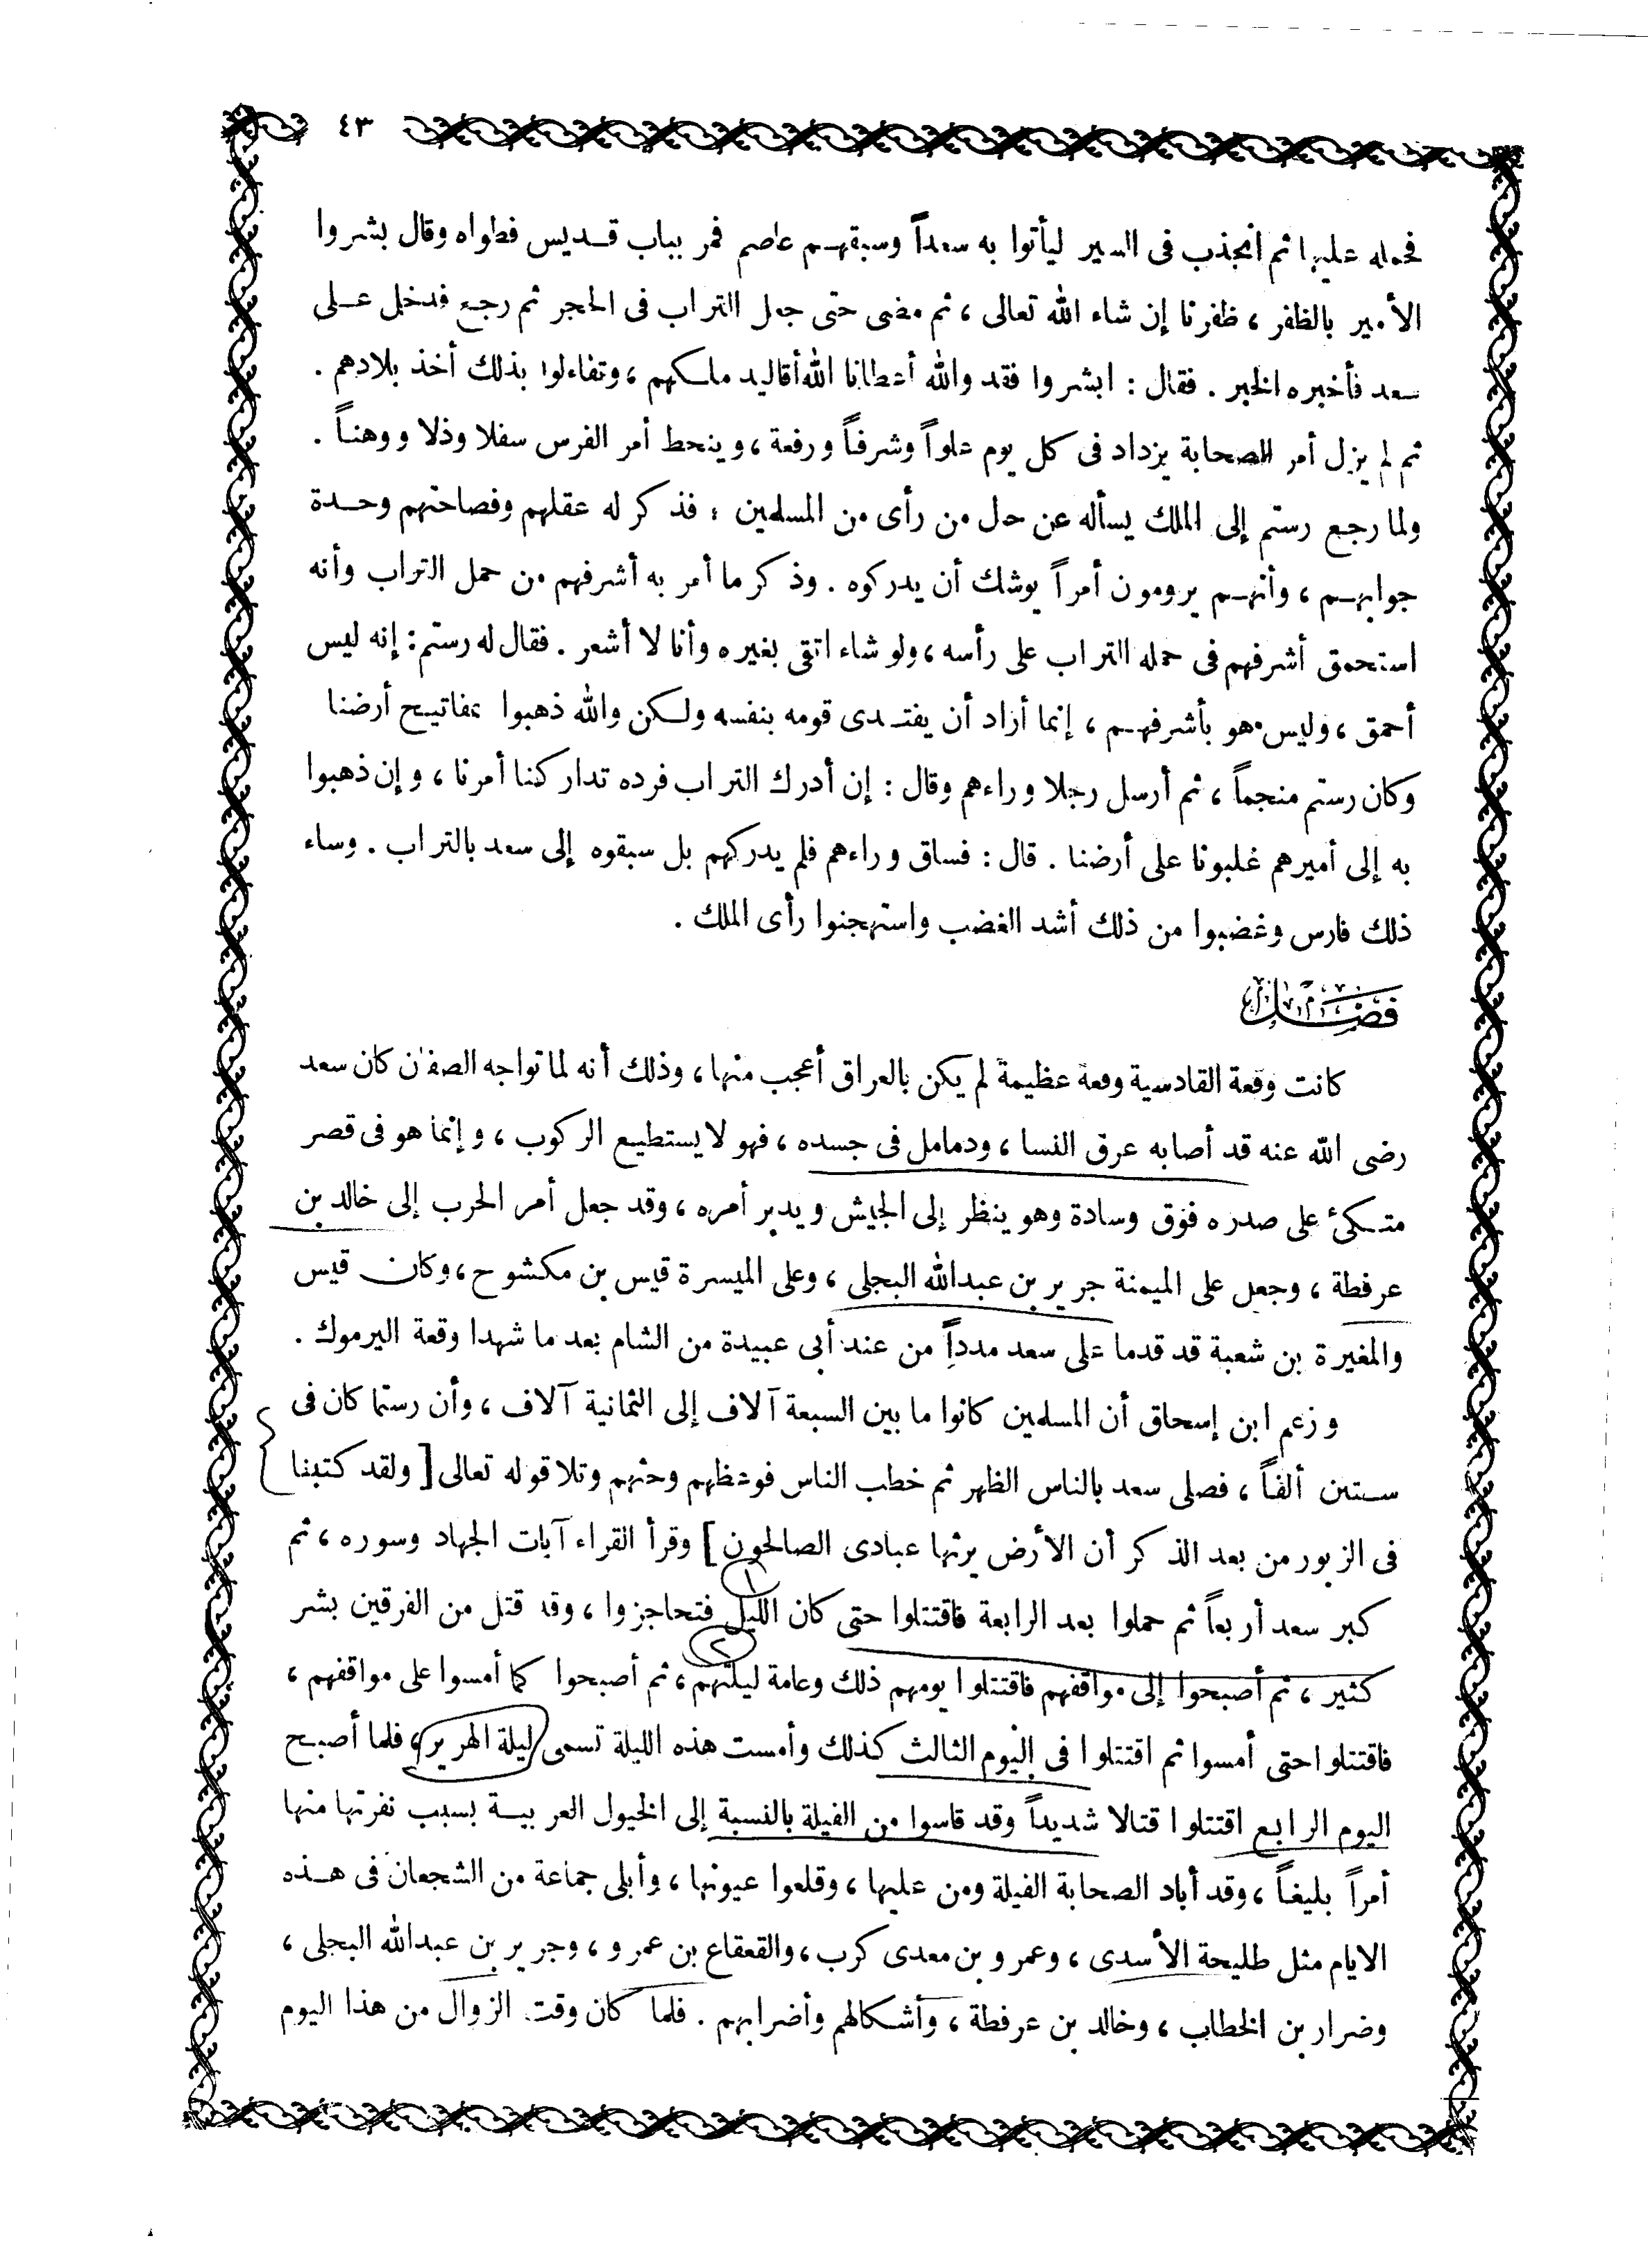 ٤٣
فحمله عليها ثم انجذب فى السير ليأتوا به سعداً وسبقهم عاصم فمر بباب قديس فطواه وقال بشروا
الأمير بالظفر ، ظفرنا إن شاء الله تعالى ، ثم مضى حتى جعل التراب فى الحجر ثم رجع فدخل على
سعد فأخبره الخبر . فقال : ابشروا فقد والله أعطانا الله أقاليد ملكهم ، وتفاءلوا بذلك أخذ بلادهم .
ثم لم يزل أمر الصحابة يزداد فى كل يوم علواً وشرفاً ورفعة ، وينحط أمر الفرس سفلا وذلا ووهناً .
ولما رجع رستم إلى الملك يسأله عن حال من رأى من المسلمين : فذكر له عقلهم وفصاحتهم وحدة
جوابهم ، وأنهم يرومون أمراً يوشك أن يدركوه . وذكر ما أمر به أشرفهم من حمل التراب وأنه
استحمق أشرفهم فى حمله التراب على رأسه ، ولو شاء اتقى بغيره وأنا لا أشعر . فقال له رستم : إنه ليس
أحمق ، وليس هو بأشرفهم ، إنما أراد أن يفتدى قومه بنفسه ولكن والله ذهبوا بمفاتيح أرضنا
وكان رستم منجماً ، ثم أرسل رجلا وراءهم وقال : إن أدرك التراب فرده تداركنا أمرنا ، وإن ذهبوا
به إلى أميرهم غلبونا على أرضنا . قال : فساق وراءهم فلم يدركهم بل سبقوه إلى سعد بالتراب . وساء
ذلك فارس وغضبوا من ذلك أشد الغضب واستهجنوا رأى الملك .
فصل
كانت وقعة القادسية وقعة عظيمة لم يكن بالعراق أعجب منها ، وذلك أنه لما تواجه الصفان كان سعد
رضى الله عنه قد أصابه عرق النسا ، ودمامل فى جسده ، فهو لا يستطيع الركوب ، وإنما هو فى قصر
متكئ على صدره فوق وسادة وهو ينظر إلى الجيش ويدبر أمره ، وقد جعل أمر الحرب إلى خالد بن
عرفطة ، وجعل على الميمنة جرير بن عبدالله البجلى ، وعلى الميسرة قيس بن مكشوح ، وكان قيس
والمغيرة بن شعبة قد قدما على سعد مدداً من عند أبى عبيدة من الشام بعد ما شهدا وقعة اليرموك .
وزعم ابن إسحاق أن المسلمين كانوا ما بين السبعة آلاف إلى الثمانية آلاف ، وأن رستما كان فى
ستين ألفاً ، فصلى سعد بالناس الظهر ثم خطب الناس فوعظهم وحثهم وتلا قوله تعالى [ ولقد كتبنا
فى الزبور من بعد الذكر أن الأرض يرثها عبادى الصالحون ] وقرأ القراء آيات الجهاد وسوره ، ثم
كبر سعد أربعاً ثم حملوا بعد الرابعة فاقتتلوا حتى كان الليل فتحاجزوا ، وقد قتل من الفرقين بشر
كثير ، ثم أصبحوا إلى مواقفهم فاقتتلوا يومهم ذلك وعامة ليلتهم ، ثم أصبحوا كما أمسوا على مواقفهم ،
فاقتتلوا حتى أمسوا ثم اقتتلوا فى اليوم الثالث كذلك وأمست هذه الليلة تسمى ليلة الهرير ، فلما أصبح
اليوم الرابع اقتتلوا قتالا شديداً وقد قاسوا من الفيلة بالنسبة إلى الخيول العربية بسبب نفرتها منها
أمراً بليغاً ، وقد أباد الصحابة الفيلة ومن عليها ، وقلعوا عيونها ، وأبلى جماعة من الشجعان فى هذه
الايام مثل طليحة الأسدى ، وعمرو بن معدى كرب ، والقعقاع بن عمرو ، وجرير بن عبدالله البجلى ،
وضرار بن الخطاب ، وخالد بن عرفطة ، وأشكالهم وأضرابهم . فلما كان وقت الزوال من هذا اليوم